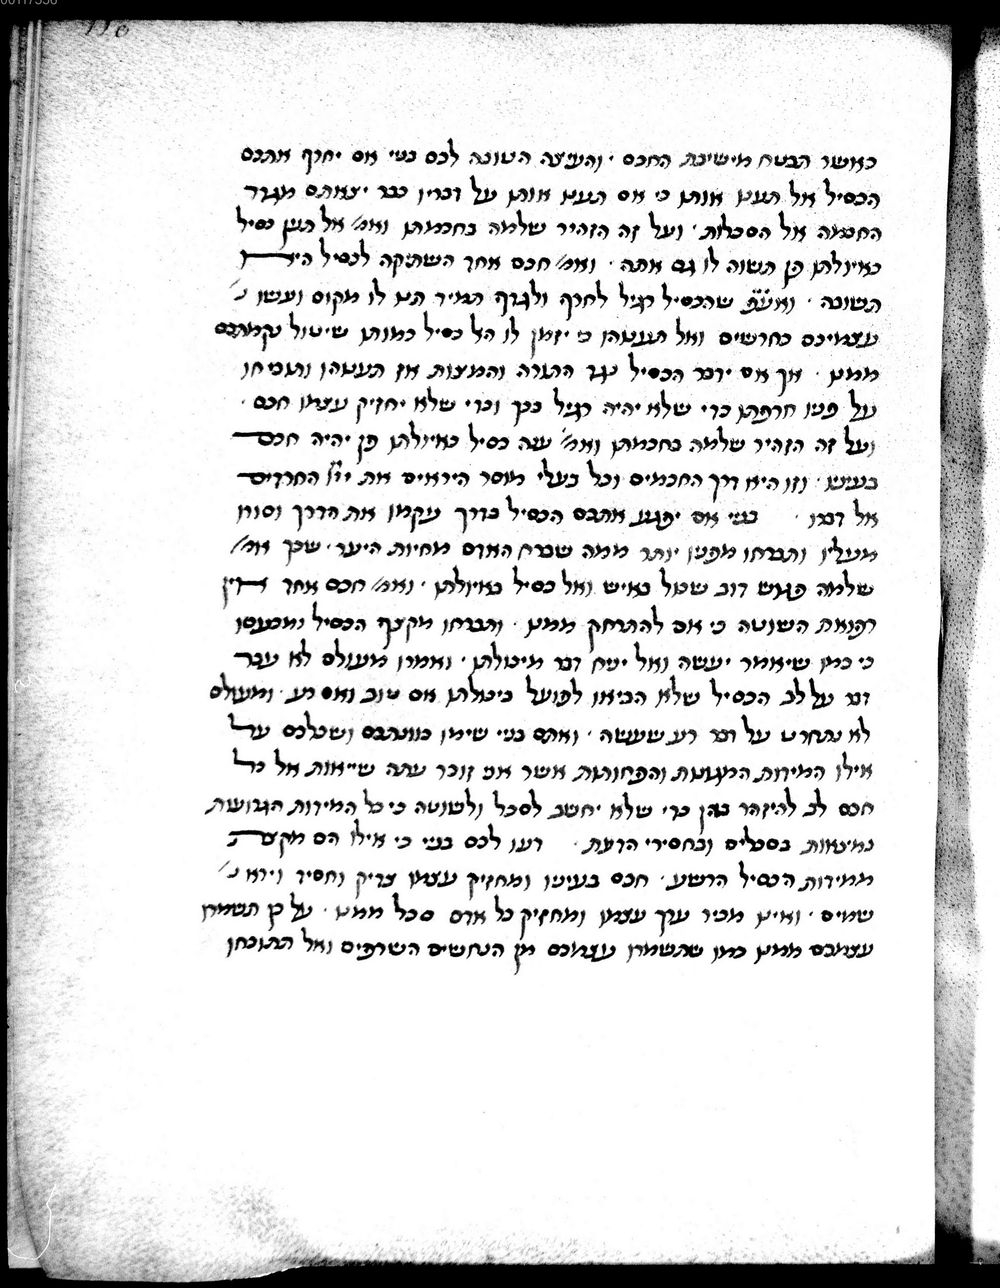 כאשר תבטח מישיבת החכם · והעיצה הטובה לכם בניי אם יחרף אתכם
הכסיל אל תענו אותו כי אם תענו אותו על דבריו כבר יצאתם מגדר
החכמה אל הסכלות · ועל זה הזהיר שלמה בחכמתו ואמ׳ אל תען כסיל
כאיולתו פן תשוה לו גם אתה · ואמ׳ חכם אחד השתיקה לכסיל היא
תשובה · שהכסיל רגיל לחרף ולגדף תמיד תנו לו מקום ועשו
עצמיכם כחרשים ואל תענוהו כי יזמן לו האל כסיל כמותו שיטול נקמתכם
ממנו · אך אם ידבר הכסיל נגד התורה והמצות אז תענוהו ותוכיחו
על פניו חרפתו כדי שלא יהיה רגיל בכך וכדי שלא יחזיק עצמו חכם ·
ועל זה הזהיר שלמה בחכמתו ואמ׳ ענה כסיל כאיולתו פן יהיה חכם
בעיניו · וזו היא דרך החכמים וכל בעלי מוסר היראים את ייי החרדים
אל דברו · בניי אם יפגע אתכם הכסיל בדרך עקמו את הדרך וסורו
מעליו ותברחו מפניו יותר ממה שבורח האדם מחיות היער · שכך אמ׳
שלמה פגוש דוב שכול באיש ואל כסיל באיולתו · ואמ׳ חכם אחד אין
רפואת השוטה כי אם להתרחק ממנו · ותברחו מקצף הכסיל ומכעסו
כי כמו שיאמר יעשה ואל יניח דבר מיכולתו · ואמרו מעולם לא עבר
דבר על לב הכסיל שלא הביאו לפועל כיכולתו אם טוב ואם רע · ומעולם
לא נתחרט על דבר רע שעשה · ואתם בניי שימו כוונתכם ושכלכם על
אילו המידות המגונות והפחותות אשר אני זוכר עתה אל כל
חכם לב להיזהר בהן כדי שלא יחשב לסכל ולשוטה כי כל המידות הגרועות
נמצאות בסכלים ובחסירי הדעת · דעו לכם בניי כי אילו הם מקצת
ממידות הכסיל הרשע · חכם בעיניו ומחזיק עצמו צדיק וחסיד וירא
שמים · ואינו מכיר ערך עצמו ומחזיק כל אדם סכל ממנו · על כן תשמרו
עצמכם ממנו כמו שתשמרו עצמכם מן הנחשים השרפים ואל תתוכחו